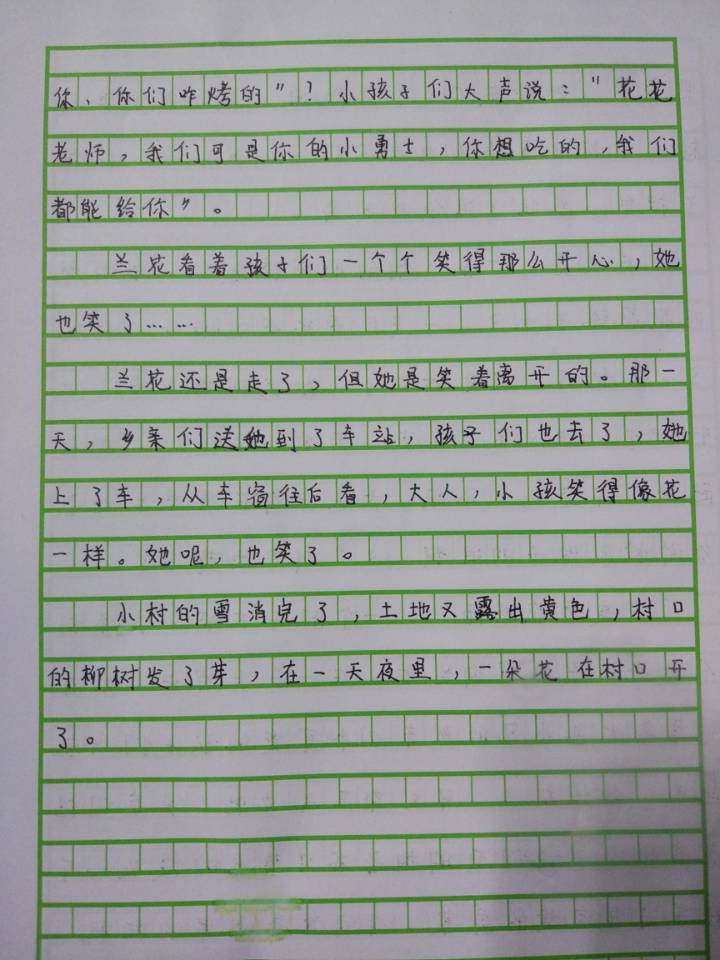 你、你们咋烤的”？小孩子们大声说：“花花
老师，我们可是你的小勇士，你想吃的，我们
都能给你”。
兰花看着孩子们一个个笑得那么开心，她
也笑了……
兰花还是走了，但她是笑着离开的。那一
天，乡亲们送她到了车站，孩子们也去了，她
上了车，从车窗往后看，大人，小孩笑得像花
一样。她呢，也笑了。
小村的雪消完了，土地又露出黄色，村口
的柳树发了芽，在一天夜里，一朵花在村口开
了。